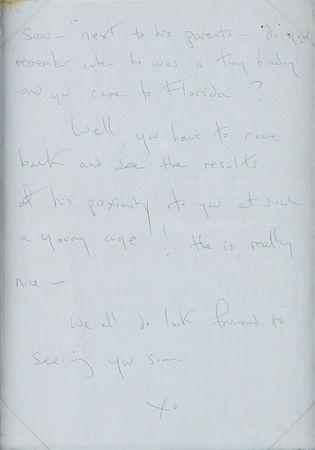 Saw - " next to his parents - do you
remember when he was a tiny baby
and you came to Florida ?
Well, you have to come
back and see the results
of his proximity to you at such
a young age ! He is really
nice -
We all do look forward to
seeing you soon
xo